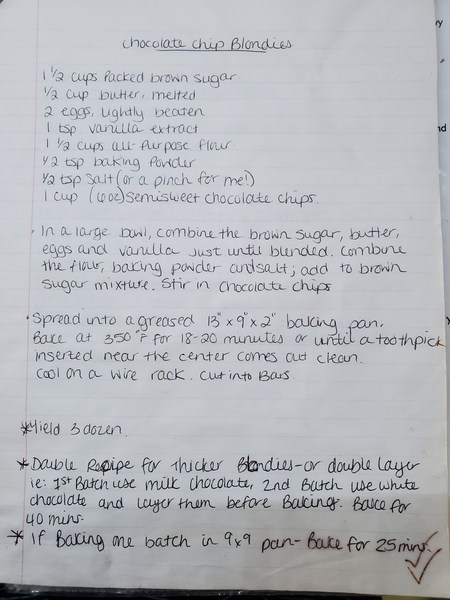 Chocolate Chip Blondies
1 1/2 cups Packed brown sugar
1/2 cup butter, melted
2 eggs, lightly beaten
1 tsp vanilla extract
1 1/2 cups all-Purpose flour
1/2 tsp baking Powder
1/2 tsp salt (or a pinch for me!)
1 cup (6oz) semisweet chocolate chips.
· In a large bowl, combine the brown sugar, butter,
eggs and vanilla just until blended. Combine
the flour, baking powder and salt; add to brown
sugar mixture. Stir in chocolate chips
· Spread into a greased 13" x 9" x 2" baking pan.
Bake at 350°F for 18-20 minutes or until a toothpick
inserted near the center comes out clean.
Cool on a wire rack. Cut into Bars.
*Yield 3 dozen.
* Double Recipe for thicker Blondies - or double layer
ie: 1st Batch use milk chocolate, 2nd Batch use white
chocolate and layer them before Baking. Bake for
40 mins.
* If Baking one batch in 9x9 pan - Bake for 25 mins.